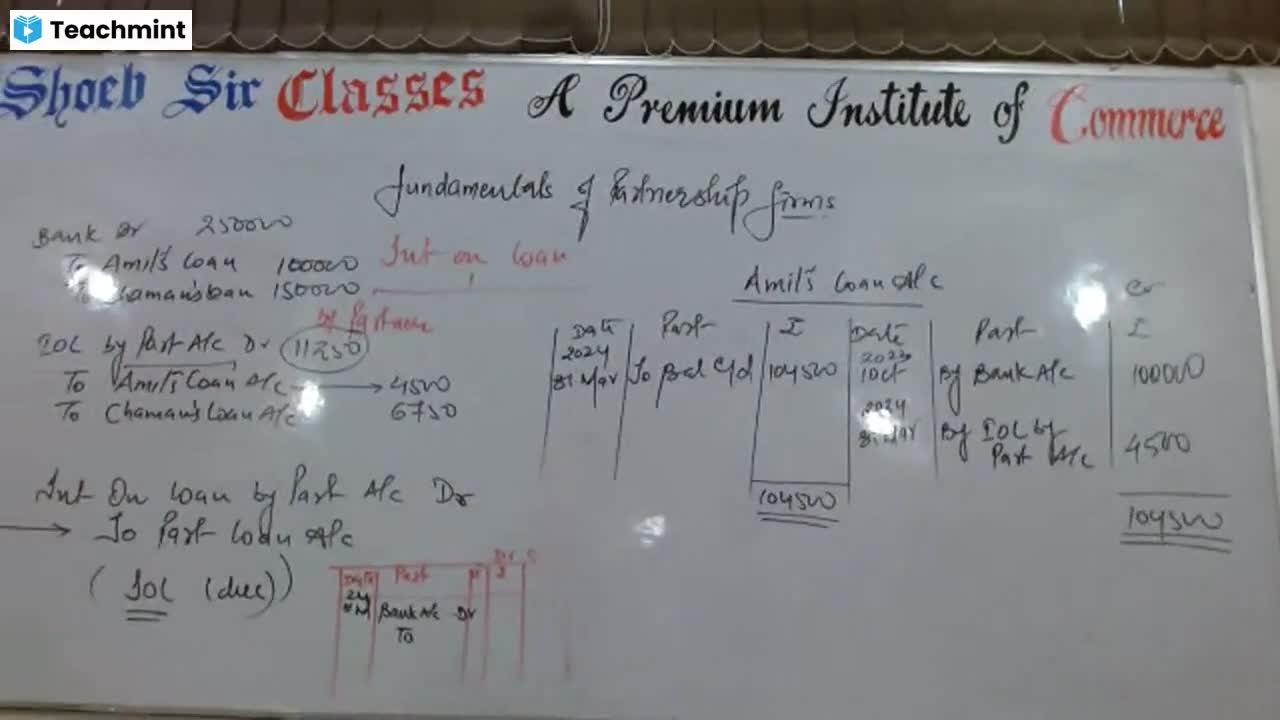 Teachmint
Shoeb Sir Classes A Premium Institute of Commerce
Fundamentals of Partnership firms
Bank Dr 250000
To Amil's Loan 100000
To Chaman's Loan 150000
Int on Loan
by Partner
IOL by Part A/c Dr 11250
To Amil's Loan A/c → 4500
To Chaman's Loan A/c 6750
Int On Loan by Part A/c Dr
→ To Part Loan A/c
(IOL (due))
Date Part Dr
24 Bank A/c Dr
To
Amil's Loan A/c
Cr
Date Part ₹ Date Part ₹
2024 2023
31 Mar To Bal C/d 104500 1 Oct By Bank A/c 100000
2024
31 Mar By IOL by
Part A/c 4500
104500 104500